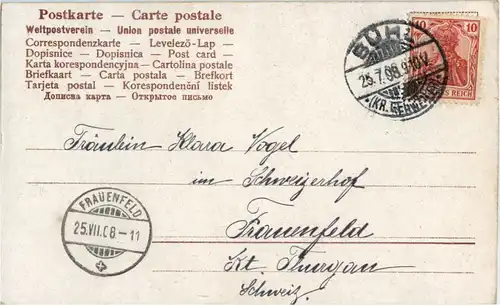 Postkarte — Carte postale
Weltpostverein — Union postale universelle
Correspondenzkarte — Levelező-Lap —
Dopisnice — Dopisnica — Post card —
Karta korespondencyjna — Cartolina postale
Briefkaart — Carta postala — Brefkort
Tarjeta postal — Korespondenční listek
Дописна карта — Открытое письмо
10 10
REICH
25.7.08.9-10V.
Fräulein Klara Vogel
im Schweizerhof
Frauenfeld
Kt. Thurgau
Schweiz.
FRAUENFELD
25.VII.08.-11